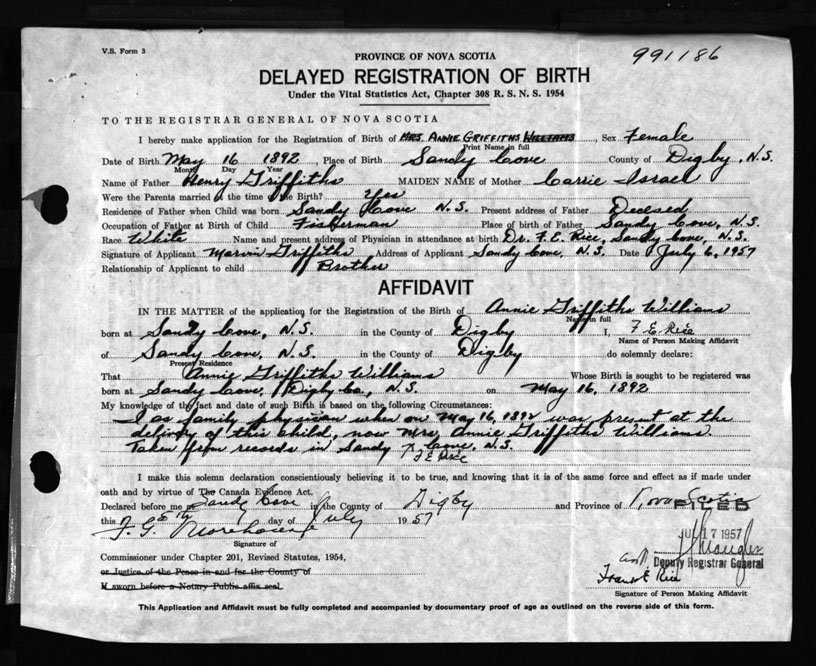 V.S. Form 3
991186
PROVINCE OF NOVA SCOTIA
DELAYED REGISTRATION OF BIRTH
Under the Vital Statistics Act, Chapter 308 R. S. N. S. 1954
TO THE REGISTRAR GENERAL OF NOVA SCOTIA
I hereby make application for the Registration of Birth of MRS. ANNIE GRIFFITHS WILLIAMS, Sex Female
Print Name in full
Date of Birth May 16 1892, Place of Birth Sandy Cove County of Digby, N.S.
Month Day Year
Name of Father Henry Griffiths MAIDEN NAME of Mother Carrie Israel
Were the Parents married at the time of the Birth? Yes
Residence of Father when Child was born Sandy Cove N.S. Present address of Father Decesed
Occupation of Father at Birth of Child Fisherman Place of birth of Father Sandy Cove, N.S.
Race White Name and present address of Physician in attendance at birth Dr. F. E. Rice, Sandy Cove, N.S.
Signature of Applicant Marvin Griffiths Address of Applicant Sandy Cove, N.S. Date July 6, 1957
Relationship of Applicant to child Brother
AFFIDAVIT
IN THE MATTER of the application for the Registration of the Birth of Annie Griffiths Williams
Name in full
born at Sandy Cove, N.S. in the County of Digby I, F. E. Rice
Name of Person Making Affidavit
of Sandy Cove, N.S. in the County of Digby do solemnly declare:
Present Residence
That Annie Griffiths Williams Whose Birth is sought to be registered was
born at Sandy Cove, Digby Co., N.S. on May 16, 1892
My knowledge of the fact and date of such Birth is based on the following Circumstances:
I as family physician when on May 16, 1892 was present at the
delivery of this child, now Mrs. Annie Griffiths Williams.
Taken from records in Sandy Cove, N.S.
F E Rice
I make this solemn declaration conscientiously believing it to be true, and knowing that it is of the same force and effect as if made under
oath and by virtue of The Canada Evidence Act.
Declared before me Sandy Cove in the County of Digby and Province of Nova Scotia
FILED
this day of July 1957
F. G. Morehouse
JUL 17 1957
Signature of
Commissioner under Chapter 201, Revised Statutes, 1954,
Deputy Registrar General
or Justice of the Peace in and for the County of
Frank E Rice
If sworn before a Notary Public affix seal
Signature of Person Making Affidavit
This Application and Affidavit must be fully completed and accompanied by documentary proof of age as outlined on the reverse side of this form.